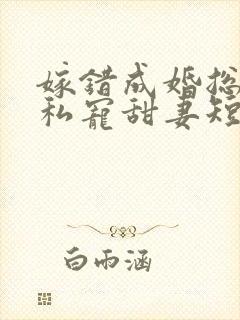 嫁错成婚总
私宠甜妻短
白雨涵